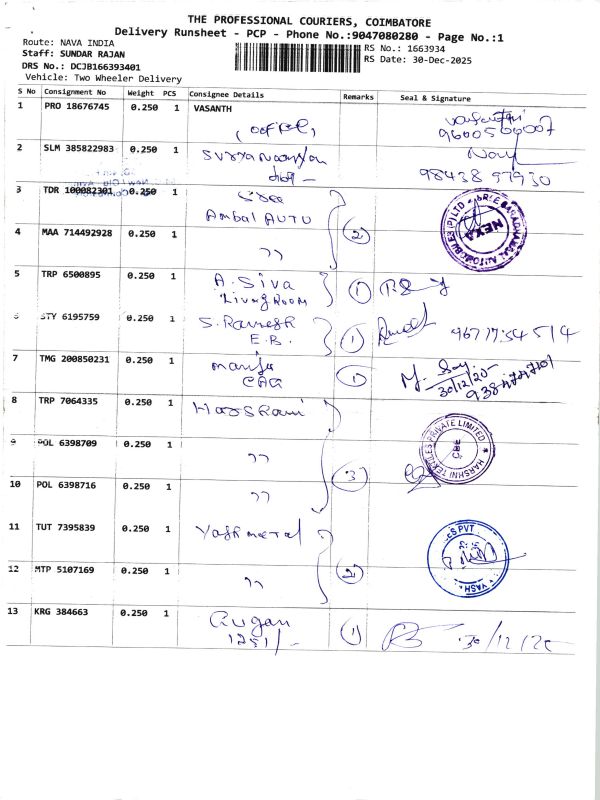 THE PROFESSIONAL COURIERS, COIMBATORE
Delivery Runsheet - PCP - Phone No.:9047080280 - Page No.:1
Route: NAVA INDIA
RS No.: 1663934
Staff: SUNDAR RAJAN
RS Date: 30-Dec-2025
DRS No.: DCJB166393401
Vehicle: Two Wheeler Delivery
S No Consignment No Weight PCS Consignee Details Remarks Seal & Signature
1 PRO 18676745 0.250 1 VASANTH
(OFFICE)
2 SLM 385822983 0.250 1
98438 97930
3 TDR 100082301 0.250 1 Sree
Ambal AUTO
NEXA
4 MAA 714492928 0.250 1 " 2
5 TRP 6500895 0.250 1 A. Siva 1
Living Room
6 STY 6195759 0.250 1 S. Ramesh 1
E.B.
7 TMG 200850231 0.250 1 1
30/12/25
8 TRP 7064335 0.250 1
HARSHNI TEXTILES PRIVATE LIMITED
9 POL 6398709 0.250 1 " 3
10 POL 6398716 0.250 1 "
11 TUT 7395839 0.250 1 Yash metal
12 MTP 5107169 0.250 1 " 2
13 KRG 384663 0.250 1 Rugan 1
1251/-